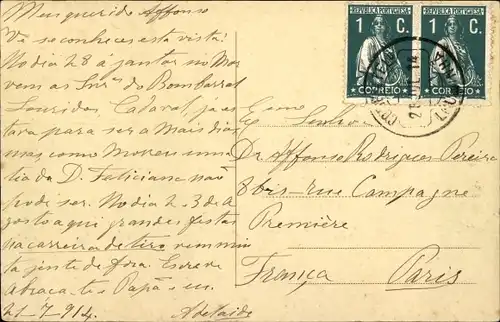 Meu querido Affonso
Vê se conheces esta vista!
No dia 28 a jantar no Mor
vem as Snras do Bombarral
Louridos Cadaval já es
tava para ser a mais dias
mas como morreu uma
tia da D. Feliciana não
pode ser. No dia 2 e 3 de A
gosto aqui grandes festas
na carreira de tiro vem mui
ta gente de fora. Escreve
Abraça-te Papá e eu
21-7-914. Adelaide
REPUBLICA PORTUGUESA REPUBLICA PORTUGUESA
1 C. 1 C.
CORREIO CORREIO
Exmo
Senhor
Dr Affonso Rodrigues Pereira
8 bis-rue Campagne
Première
França Paris